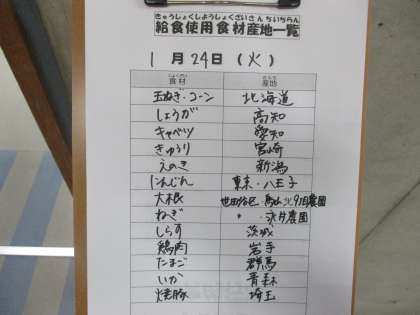 きゅうしょくしようしょくざいさんちいちらん
給食使用食材産地一覧
1月24日(火)
しょくざい さんち
食材 産地
玉ねぎ・コーン 北海道
しょうが 高知
キャベツ 愛知
きゅうり 宮崎
えのき 新潟
にんじん 東京・八王子
大根 世田谷区・烏山北
ねぎ 〃・農園
しらす 茨城
鶏肉 岩手
たまご 群馬
いか 青森
焼豚 埼玉